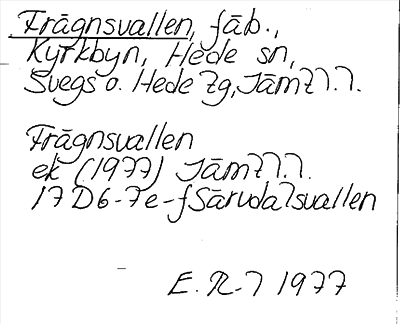 Frågnsvallen, fäb.,
Kyrkbyn, Hede sn,
Svegs o. Hede tg, Jämtl.l.
Frågnsvallen
ek (1977) Jämtl.l.
17 D6-7e-f Särvdalsvallen
E. R-l 1977